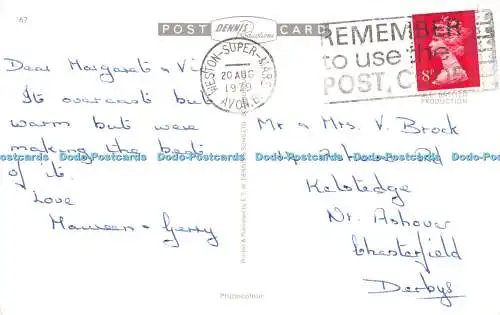 67
POST DENNIS Productions CARD
WESTON-SUPER-MARE
20 AUG
1979
AVON.
REMEMBER
to use the
POST CODE
8P
PRODUCTION
Dear Margaret + Vi
It overcast but
warm but were
making the best
of it.
Love
Maureen + Gerry
Mr & Mrs. V. Brock
Rd
Kelstedge
Nr. Ashover
Chesterfield
Derbys
Photocolour
Dodo-Postcards Dodo-Postcards Dodo-Postcards Dodo-Postcards Dodo-Postcards